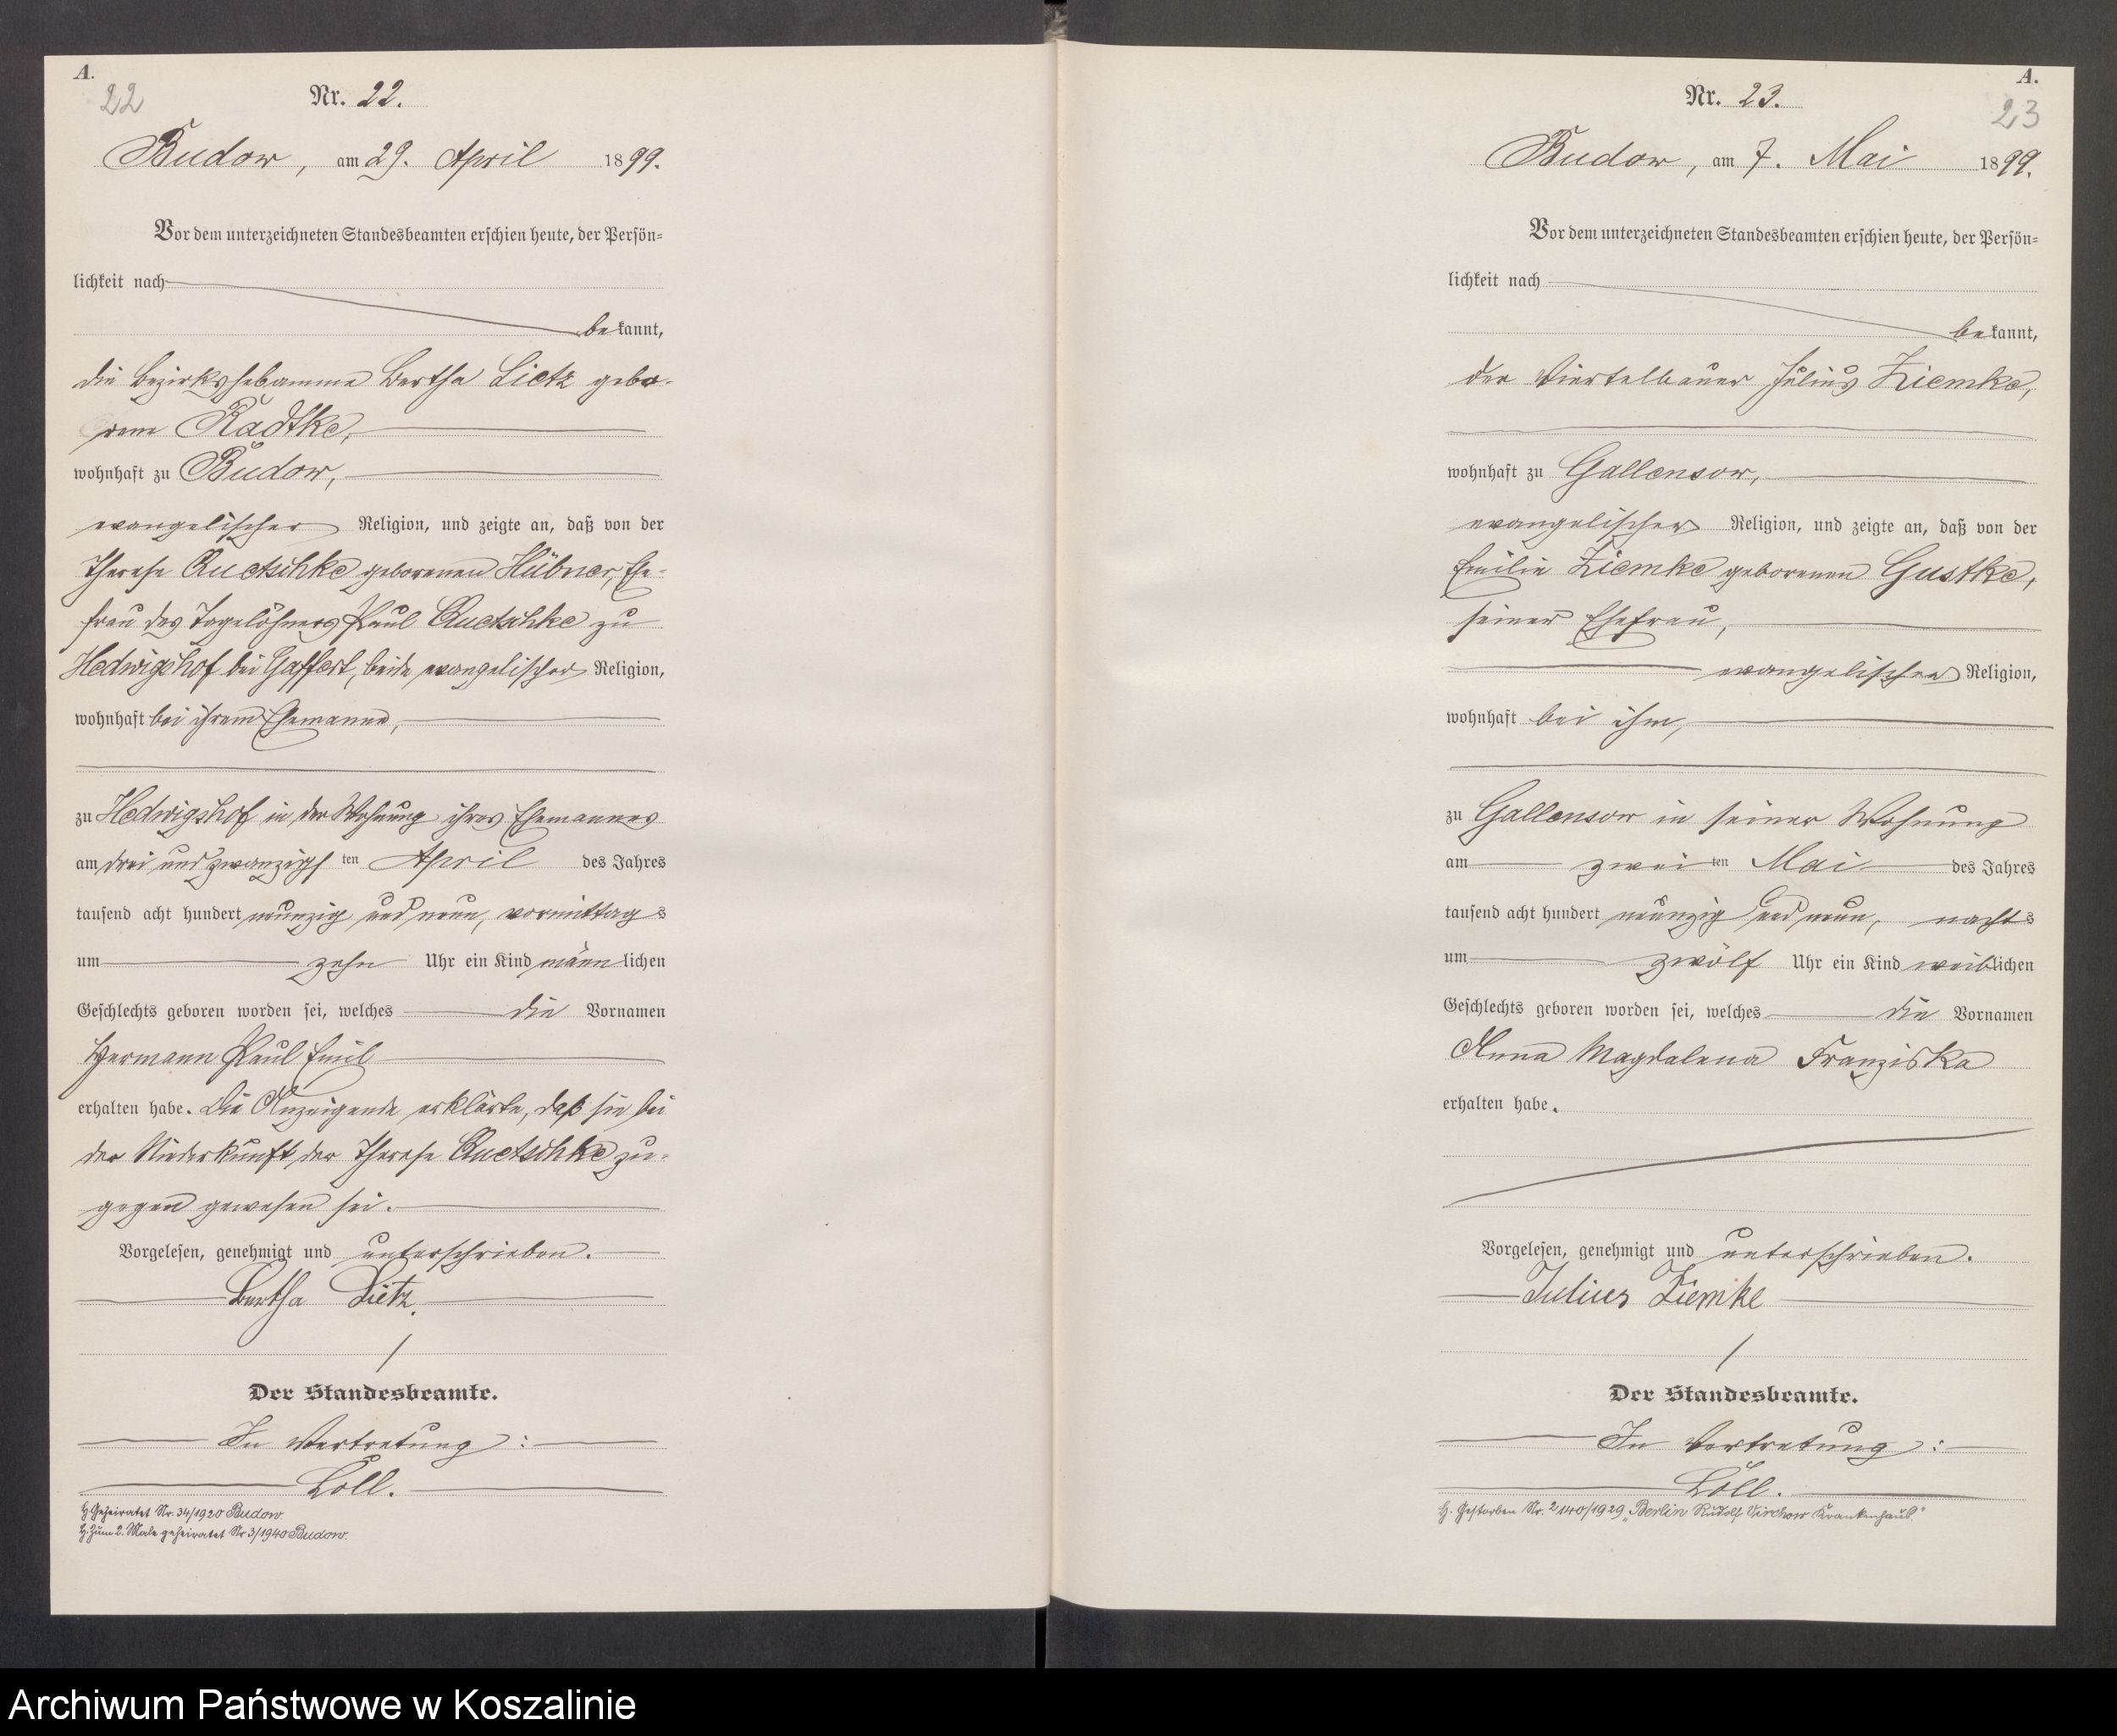 A.
22
Nr. 22.
Budow, am 29. April 1899.
Vor dem unterzeichneten Standesbeamten erschien heute, der Persön=
lichkeit nach
bekannt,
die Bezirkshebamme Bertha Lietz gebo-
rene Radtke,
wohnhaft zu Budow,
evangelischer Religion, und zeigte an, daß von der
Therese Quetschke geborenen Hübner, Ehe-
frau des Tagelöhners Paul Quetschke zu
Hedwigshof bei Gaffert, beide evangelischer Religion,
wohnhaft bei ihrem Ehemanne,
zu Hedwigshof in der Wohnung ihres Ehemannes
am drei und zwanzigsten April des Jahres
tausend acht hundert neunzig und neun, vormittags
um zehn Uhr ein Kind männlichen
Geschlechts geboren worden sei, welches die Vornamen
Hermann Paul Emil
erhalten habe. Die Anzeigende erklärte, daß sie bei
der Niederkunft der Therese Quetschke zu-
gegen gewesen sei.
Vorgelesen, genehmigt und unterschrieben.
Bertha Lietz.
Der Standesbeamte.
In Vertretung:
Löll.
H Geheiratet Nr. 34/1920 Budow.
H. Zum 2. Male geheiratet Nr 3/1940 Budow.
A.
23
Nr. 23.
Budow, am 7. Mai 1899.
Vor dem unterzeichneten Standesbeamten erschien heute, der Persön=
lichkeit nach
bekannt,
der Viertelbauer Julius Ziemke,
wohnhaft zu Gallensow,
evangelischer Religion, und zeigte an, daß von der
Emilie Ziemke geborenen Gustke,
seiner Ehefrau,
evangelischer Religion,
wohnhaft bei ihm,
zu Gallensow in seiner Wohnung
am zweiten Mai des Jahres
tausend acht hundert neunzig und neun, nachts
um zwölf Uhr ein Kind weiblichen
Geschlechts geboren worden sei, welches die Vornamen
Anna Magdalena Franziska
erhalten habe.
Vorgelesen, genehmigt und unterschrieben.
Julius Ziemke
Der Standesbeamte.
In Vertretung:
Löll.
H. Gestorben Nr. 2140/1929 „Berlin Rudolf Virchow Krankenhaus"
Archiwum Państwowe w Koszalinie